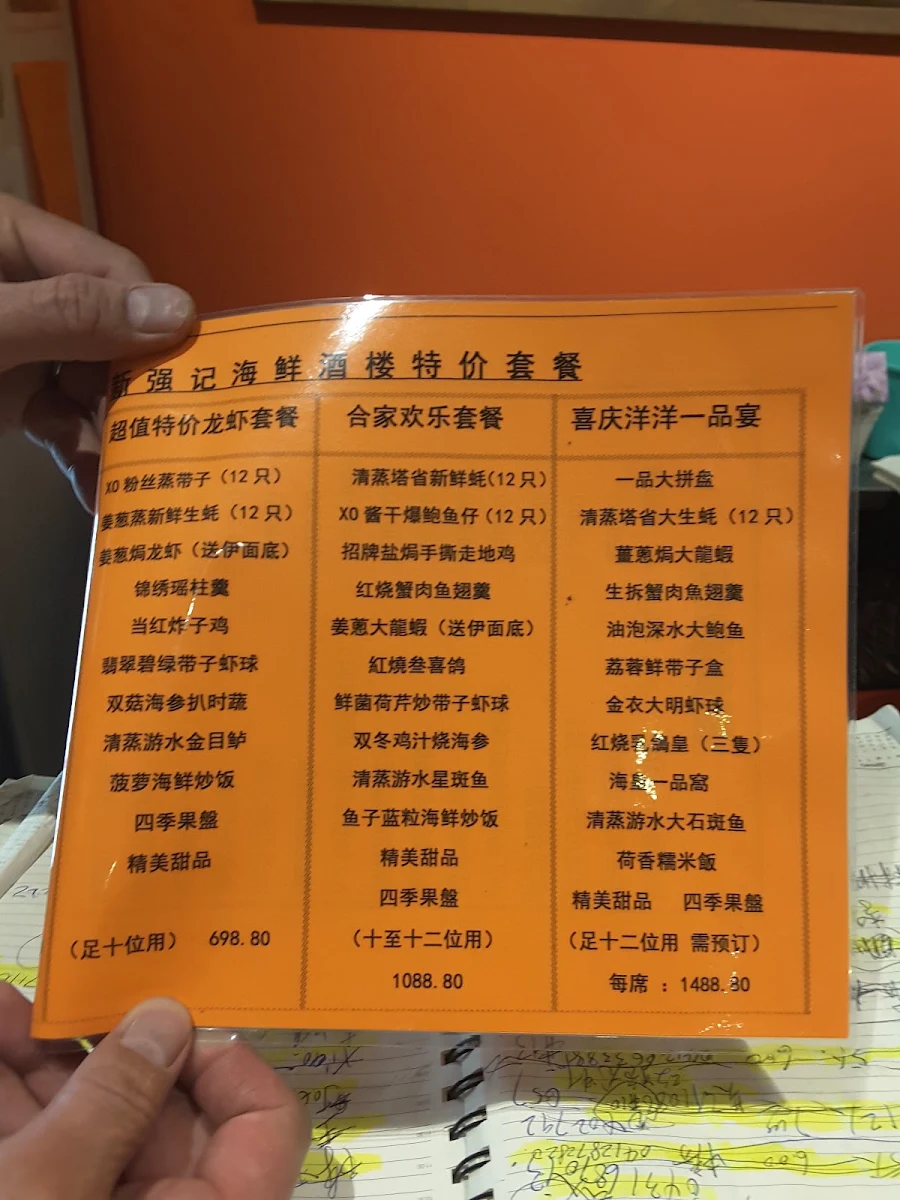 新强记海鲜酒楼特价套餐
超值特价龙虾套餐
XO粉丝蒸带子（12只）
姜葱蒸新鲜生蚝（12只）
姜葱焗龙虾（送伊面底）
锦绣瑶柱羹
当红炸子鸡
翡翠碧绿带子虾球
双菇海参扒时蔬
清蒸游水金目鲈
菠萝海鲜炒饭
四季果盤
精美甜品
（足十位用） 698.80
合家欢乐套餐
清蒸塔省新鲜蚝(12只）
XO酱干爆鲍鱼仔（12只）
招牌盐焗手撕走地鸡
红烧蟹肉鱼翅羹
姜蔥大龍蝦（送伊面底）
紅燒叁喜鸽
鲜菌荷芹炒带子虾球
双冬鸡汁烧海参
清蒸游水星斑鱼
鱼子蓝粒海鲜炒饭
精美甜品
四季果盤
（十至十二位用）
1088.80
喜庆洋洋一品宴
一品大拼盘
清蒸塔省大生蚝（12只）
薑蔥焗大龍蝦
生拆蟹肉魚翅羹
油泡深水大鲍鱼
荔蓉鲜带子盒
金衣大明虾球
红烧乳鴿皇（三隻）
海皇一品窩
清蒸游水大石斑鱼
荷香糯米飯
精美甜品 四季果盤
（足十二位用 需预订）
每席 ：1488.80